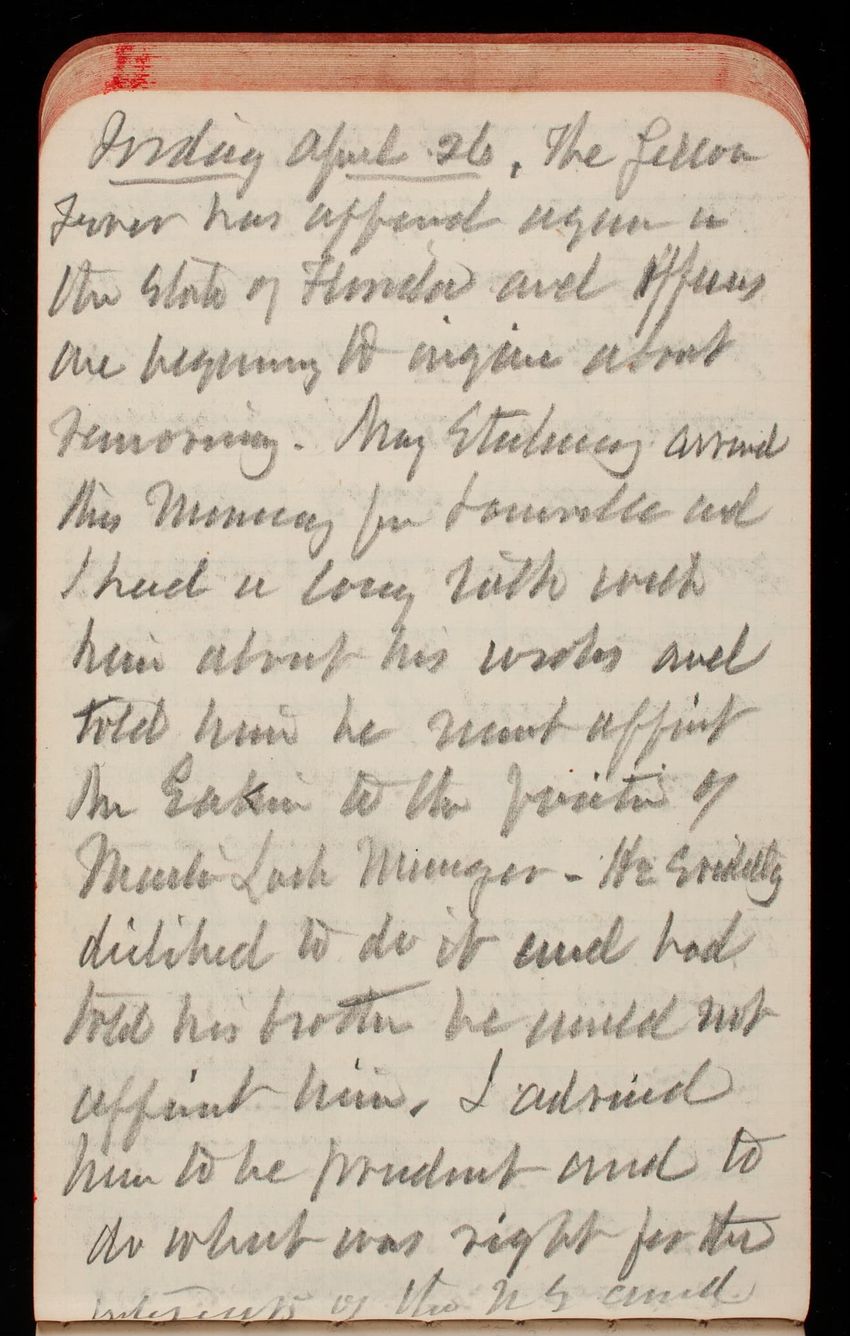 Friday April 26, The Yellow
Fever has appeard again in
the State of Florida and Officers
are begining to inquire about
removing. Maj Stickney arrived
this Morning for Louisville and
I had a long talk with
him about his works and
told him he must appoint
Mr Eakin to the position of
Lock Manager - He evidently
disliked to do it and had
told his brother he would not
appoint him, I advised
him to be prudent and to
do what was right for the
interests of the US and